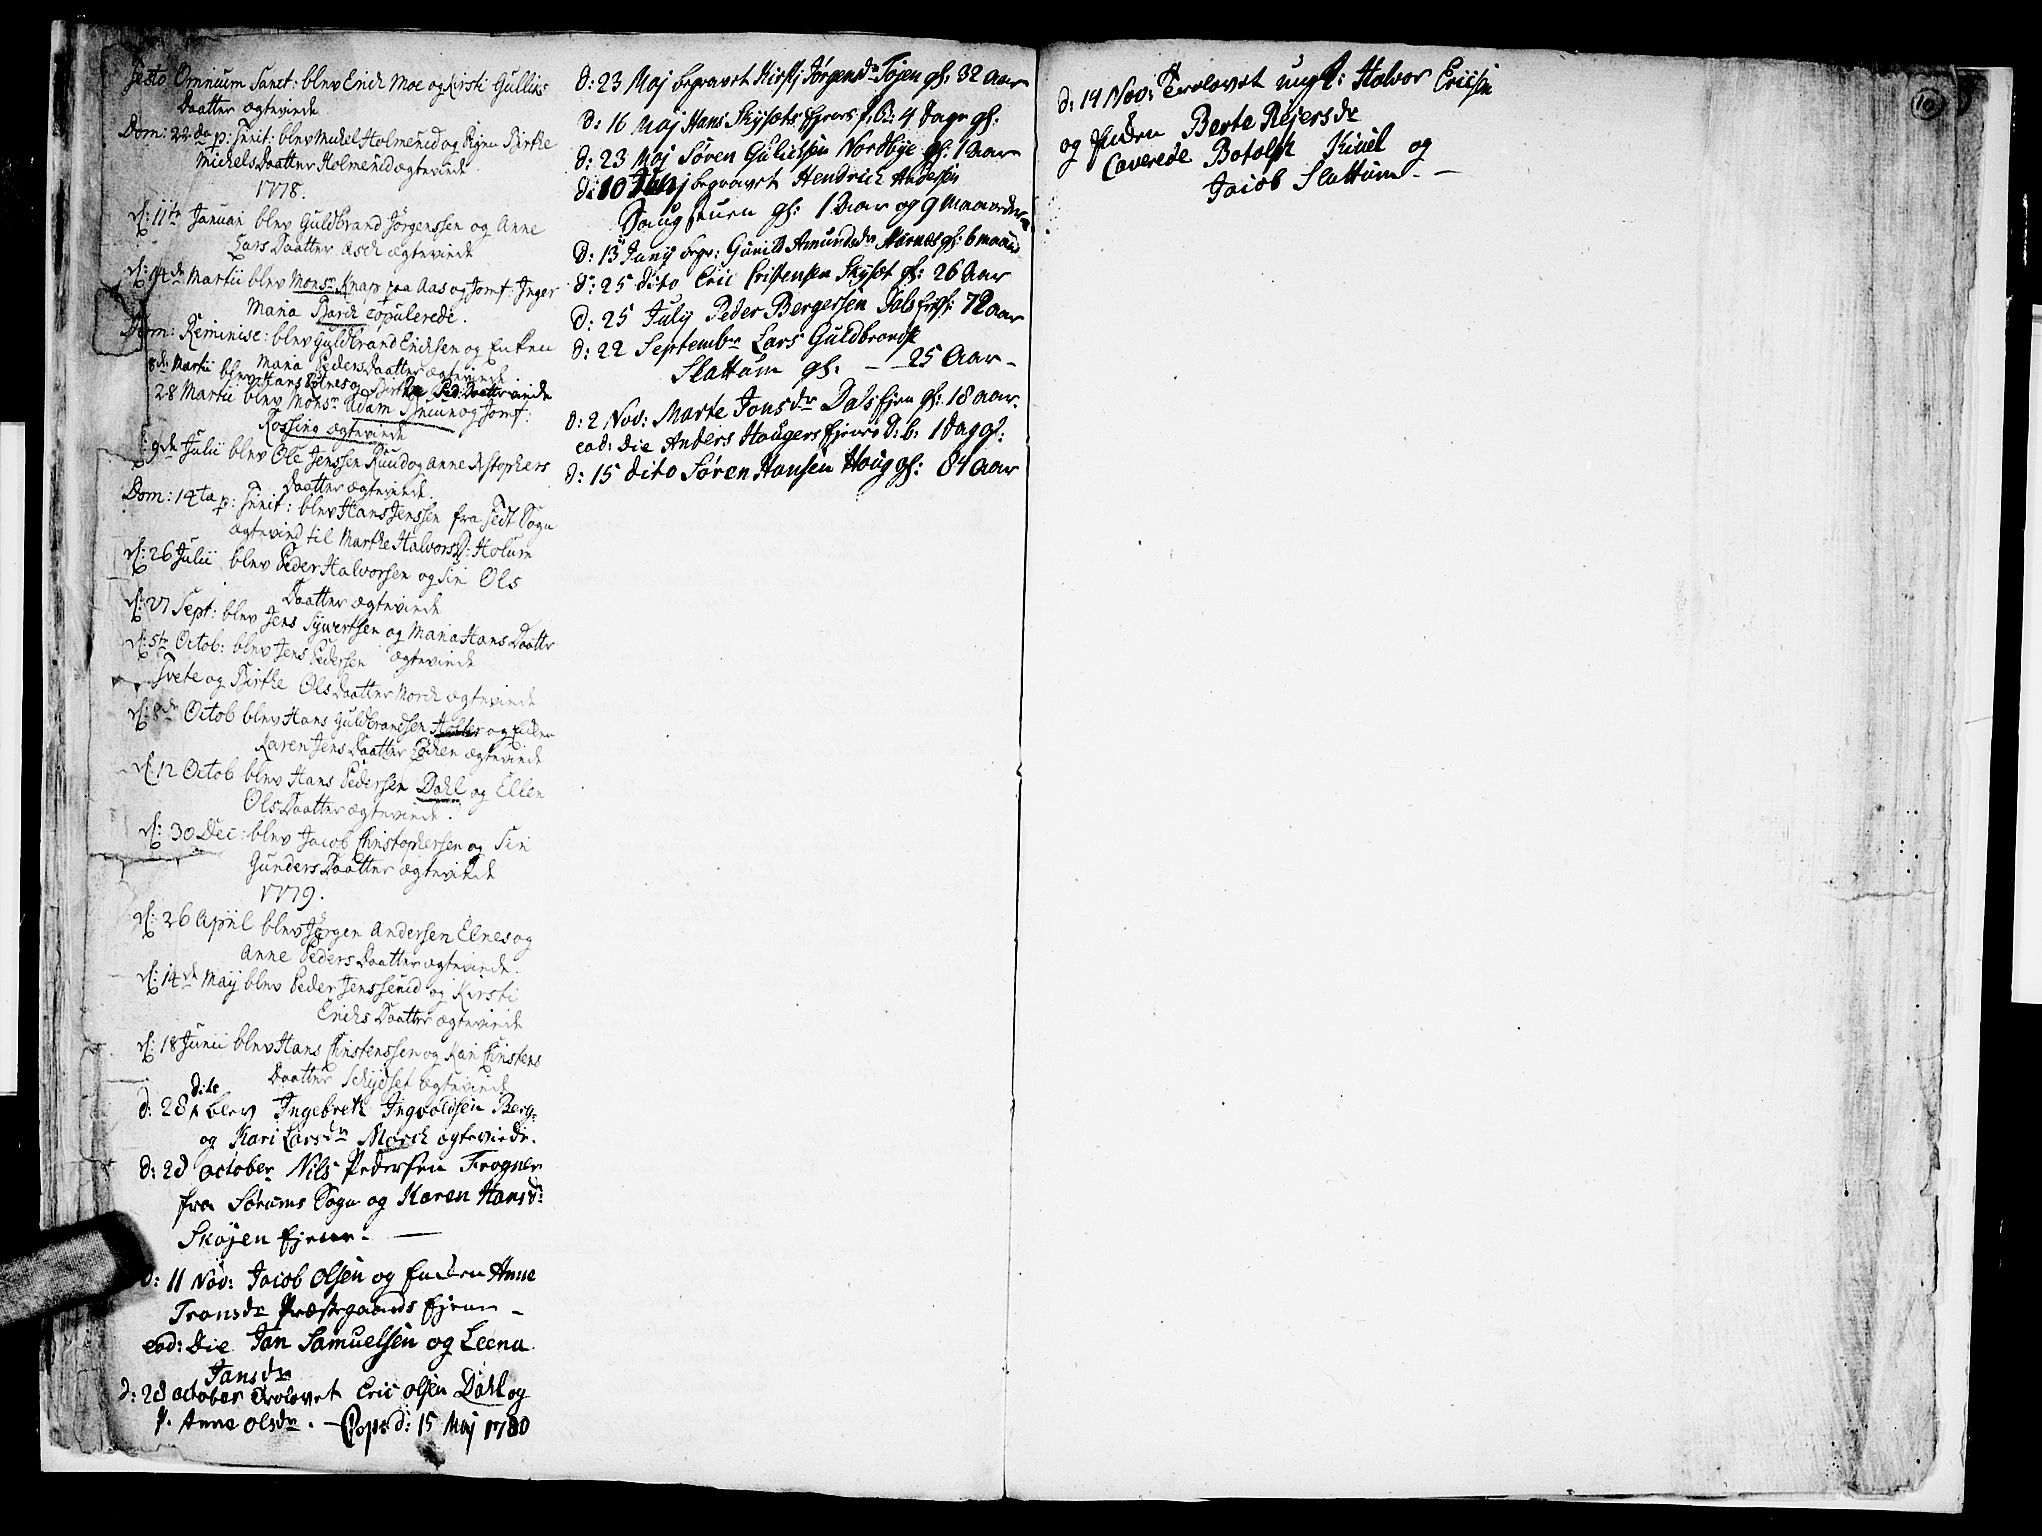 Festo Omnium Sanct: blev Erich Moe og Kirsti Gulliks
Daatter ægteviede
Dom: 22da p: Trinit: blev Mickel Holmerud og Birthe
Michels Daatter Holmerud ægteviede
1778.
d: 11te Januari blev Guldbrand Jørgenssen og Anne
Lars Daatter Asch ægteviede
d: 14de Martii blev Monsr Knap paa Aas og Jomf. Inger
Maria copulerede.
Dom: Reminisc: blev Guldbrand Erichsen og Enken
Maria Peders Daatter ægteviede
8de Martii blev Hans Elnes og Birthe Ped: Daatter viede
28 Martii blev Monsr Adam og Jomf:
Rossing ægteviede
d: 9de Julii blev Ole Jenssen Ruud og Anne Kristophers
Daatter ægteviede.
Dom: 14ta p: Trinit: blev Hans Jenssen fra Fedt Sogn
ægteviet til Marthe Halvors D: Holum
d: 26 Julii blev Peder Halvorsen og Siri Ols
Daatter ægteviede
d: 27 Sept: blev Jens Sywertsen og Maria Hans Daatter
ægteviede
d: 5te Octob: blev Jens Pedersen
Tvete og Birthe Ols Daatter Morch ægteviede
d: 8de Octob blev Hans Guldbrandsen og Enken
Karen Jens Daatter ægteviede
d: 12 Octob blev Hans Pedersen Dahl og Ellen
Ols Daatter ægteviede.
d: 30 Dec: blev Jacob Christophersen og Siri
Gunders Daatter ægteviede
1779.
d: 26 April blev Jørgen Andersen Elnes og
Anne Peders Daatter ægteviede.
d: 14de Maij blev Peder Jenssen og Kirsti
Erichs Daatter ægteviede
d: 18 Junii blev Hans Christenssen og Kari Christens
Daatter Schydset ægteviede
d: 28 dito blev Ingebreth Ingvoldsen Berg
og Kari Larsdr Morch ægteviede.
d: 28 October Nils Pedersen Frogner
fra Sørums Sogn og Karen Hansdr
Skøjen Ejerne. —
d: 11 Nov: Jacob Olsen og Enken Anne
Transdr Præstegaards Ejerne —
eod: Die Jan Samuelsen og Leena
Jansdr
d: 28 october Trolovet Eric Olsen Dahl og
p. Anne Olsdr. — Cop: d: 15 Maj 1780
d: 23 Maj begravet Kirsti Jørgensdr Tøjen gl: 32 aar
d: 16 Maj Hans Skysets Ejerns f. B: 4 Dage gl.
d: 23 Maj Søren Gulichsen Nordbye gl: 1 Aar
d: 10 Junj begravet Hendrich Andersen
Haugstuen gl: 1 aar og 9 Maaneder
d: 13 Junij begr: Gunild Amundsdr Nærnes gl: 6 maaned
d: 25 dito Eric Cristensen Skyset gl: 26 Aar
d: 25 Julij Peder Bergersen Dals Ejr gl: 72 aar
d: 22 Septembr Lars Guldbrands:
Slattum gl: — 25 Aar —
d: 2 Nov: Marte Jonsdr Dals Ejrn gl: 18 aar.
eod: Die Anders Haugers Ejerns D: b: 1 Dag gl:
d: 15 dito Søren Hansen Haug gl: 84 aar
10
d: 14 Nov: Trolovet ungk: Halvor Ericsen
og Piden Berte Rejersdr
Caverede Botolph Kivel og
Jacob Slattum. —